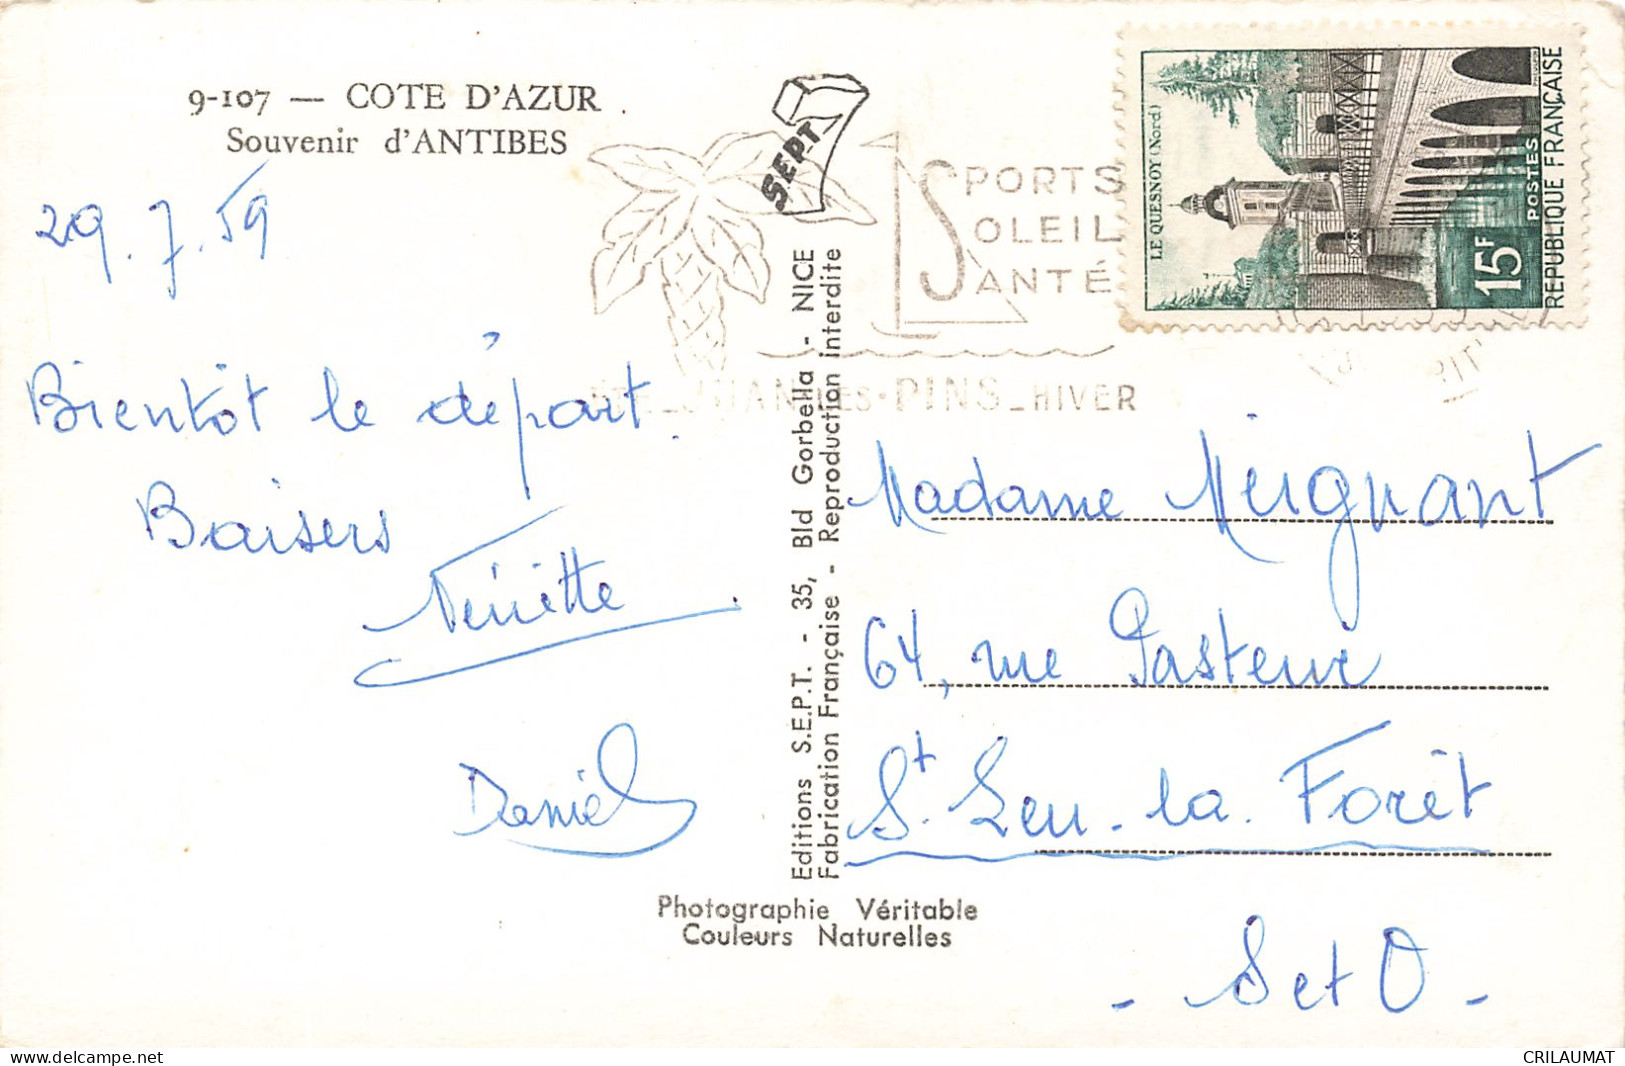 9-107 — COTE D'AZUR
Souvenir d'ANTIBES
29.7.59
Bientôt le départ.
Baisers
Daniel
SEPT
SPORTS
SOLEIL
SANTÉ
JUAN-LES-PINS_HIVER
LE QUESNOY (Nord)
15F
POSTES
REPUBLIQUE FRANÇAISE
Editions S.E.P.T. - 35, Bld Gorbella - NICE
Fabrication Française - Reproduction interdite
Photographie Véritable
Couleurs Naturelles
Madame Meignant
64, rue Pasteur
St. Leu-la-Forêt
- S et O -
delcampe.net
CRILAUMAT